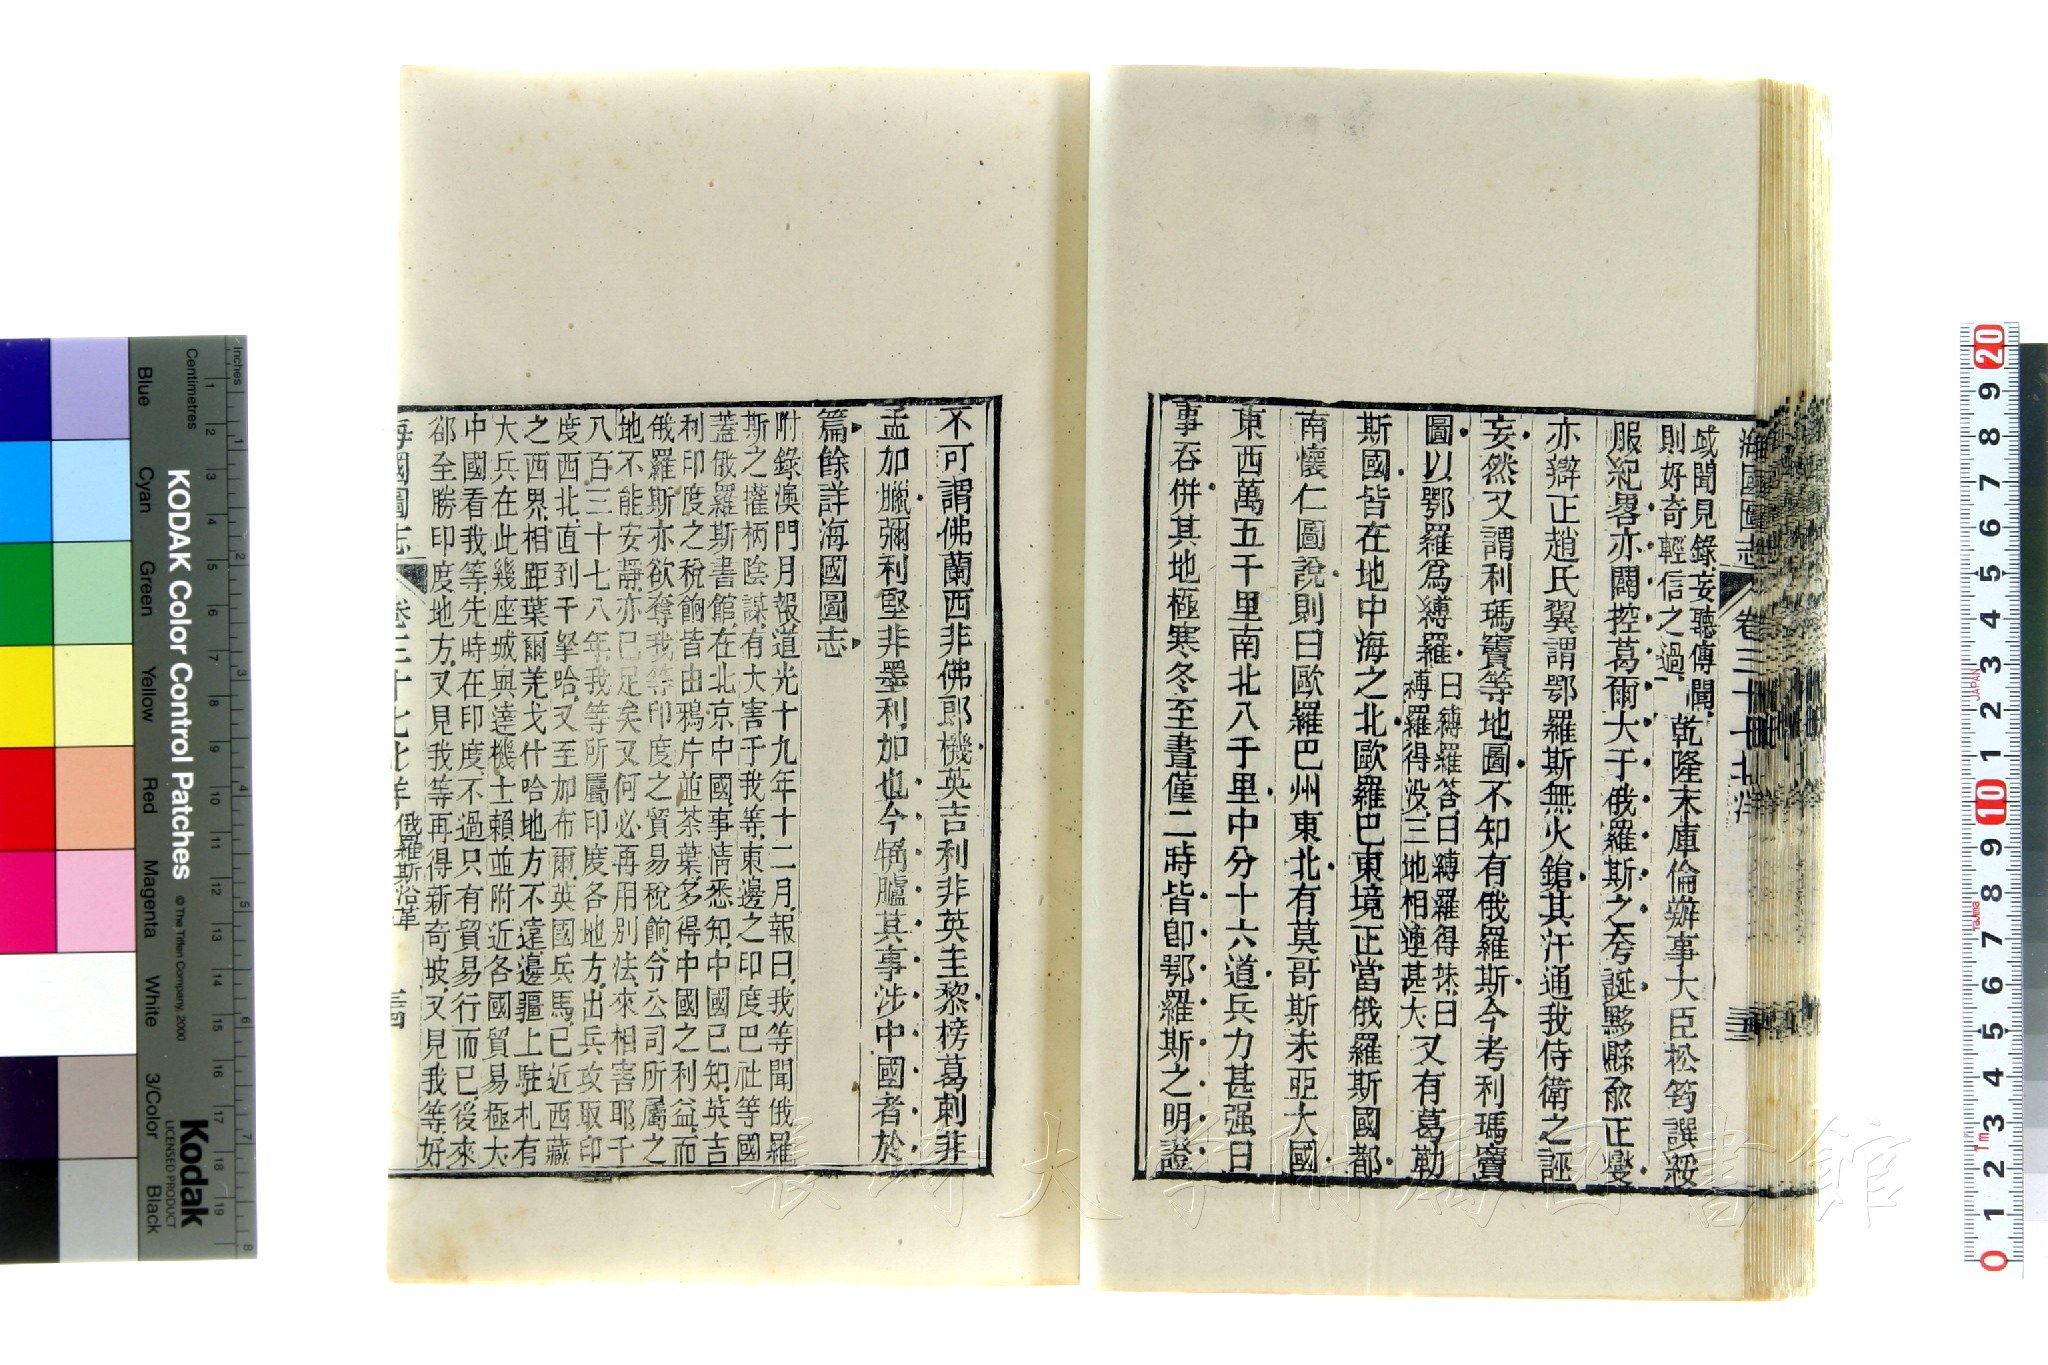 海國圖志 卷三十七 北洋
域聞見錄妄聽傳聞
則好奇輕信之過
乾隆末庫倫辦事大臣松筠譔綏
服紀畧亦闢控葛爾大于俄羅斯之夸誕黟縣俞正燮
亦辯正趙氏翼謂鄂羅斯無火鎗其汗通我侍衛之誣
妄然又謂利瑪竇等地圖不知有俄羅斯今考利瑪竇
圖以鄂羅爲縛羅
曰縛羅答曰縛羅得沬曰
縛羅得没三地相連甚大
又有葛勒
斯國皆在地中海之北歐羅巴東境正當俄羅斯國都
南懷仁圖說則曰歐羅巴州東北有莫哥斯未亞大國
東西萬五千里南北八千里中分十六道兵力甚强日
事吞併其地極寒冬至晝僅二時皆卽鄂羅斯之明證
不可謂佛蘭西非佛郎機英吉利非英圭黎榜葛剌非
孟加臘彌利堅非墨利加也今犕臚其事涉中國者於
篇餘詳海國圖志
附錄澳門月報道光十九年十二月報曰我等聞俄羅
斯之攉柄陰謀有大害于我等東邊之印度巴社等國
蓋俄羅斯書館在北京中國事情悉知中國已知英吉
利印度之稅餉皆由鴉片並茶葉多得中國之利益而
俄羅斯亦欲奪我等印度之貿易稅餉令公司所屬之
地不能安靜亦已足矣又何必再用別法來相害耶千
八百三十七八年我等所屬印度各地方出兵攻取印
度西北直到干拏哈又至加布爾英國兵馬已近西藏
之西界相距葉爾羌戈什哈地方不遠邊疆上駐札有
大兵在此幾座城與達機士賴並附近各國貿易極大
中國看我等先時在印度不過只有貿易行而已後來
郤全勝印度地方又見我等再得新奇坡又見我等好
海國圖志 卷三十七北洋 俄羅斯沿革